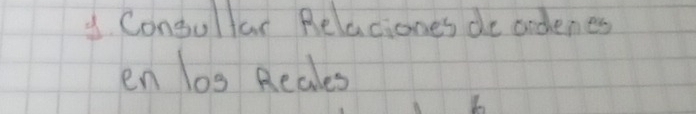 Consultar Relaciones de ordenes
en los Reales